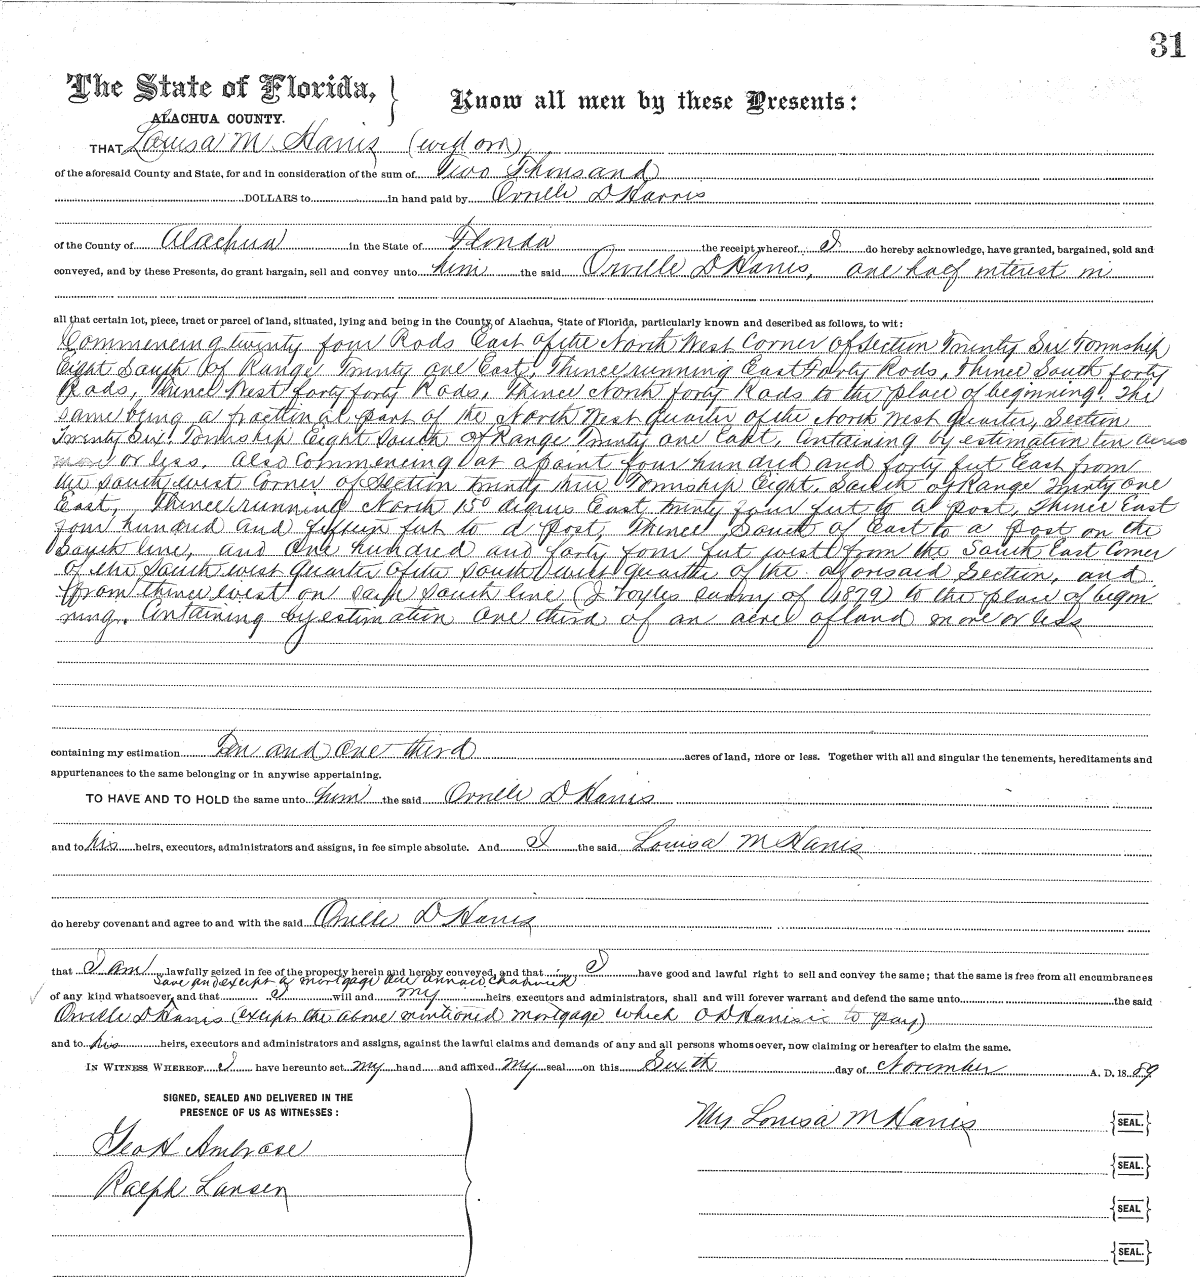 31
The State of Florida,
ALACHUA COUNTY.
Know all men by these Presents:
THAT Louisa M Harris (widow)
of the aforesaid County and State, for and in consideration of the sum of Two Thousand
DOLLARS to in hand paid by Orville D Harris
of the County of Alachua in the State of Florida the receipt whereof I do hereby acknowledge, have granted, bargained, sold and
conveyed, and by these Presents, do grant bargain, sell and convey unto him the said Orville D Harris, one half interest in
all that certain lot, piece, tract or parcel of land, situated, lying and being in the County of Alachua, State of Florida, particularly known and described as follows, to wit:
Commencing twenty four Rods East of the North West Corner of Section Twenty Six Township
Eight South of Range Twenty one East, Thence running East Forty Rods, Thence South forty
Rods, Thence West forty forty Rods, Thence North forty Rods to the place of beginning. The
same being a fractional part of the North West Quarter of the North West Quarter, Section
Twenty Six. Township Eight South of Range Twenty one East, Containing by estimation ten acres
more or less. Also Commencing at a point four hundred and forty feet East from
the South west Corner of Section twenty three Township Eight, South of Range Twenty one
East, Thence running North 15° degrees East twenty four feet to a post, Thence East
four hundred and fifteen feet to a post, Thence South of East to a post on the
South line, and One hundred and forty four feet west from the South East Corner
of the South west Quarter of the South west quarter of the aforesaid Section, and
from thence west on said South line (J Foyles survey of 1879) to the place of begin
ning. Containing by estimation one third of an acre of land more or less
containing my estimation Ten and one third acres of land, more or less. Together with all and singular the tenements, hereditaments and
appurtenances to the same belonging or in anywise appertaining.
TO HAVE AND TO HOLD the same unto him the said Orville D Harris
and to his heirs, executors, administrators and assigns, in fee simple absolute. And I the said Louisa M Harris
do hereby covenant and agree to and with the said Orville D Harris
that I am lawfully seized in fee of the property herein and hereby conveyed, and that I have good and lawful right to sell and convey the same; that the same is free from all encumbrances
Save and except a mortgage due Chadwick
of any kind whatsoever, and that I will and my heirs, executors and administrators, shall and will forever warrant and defend the same unto the said
Orville D Harris (except the above mentioned mortgage which O D Harris is to pay)
and to his heirs, executors and administrators and assigns, against the lawful claims and demands of any and all persons whomsoever, now claiming or hereafter to claim the same.
IN WITNESS WHEREOF I have hereunto set my hand and affixed my seal on this Sixth day of November A. D. 1889
SIGNED, SEALED AND DELIVERED IN THE
PRESENCE OF US AS WITNESSES:
Mrs Louisa M Harris {SEAL.}
Geo H Ambrose
{SEAL.}
Ralph Lansen
{SEAL}
{SEAL.}